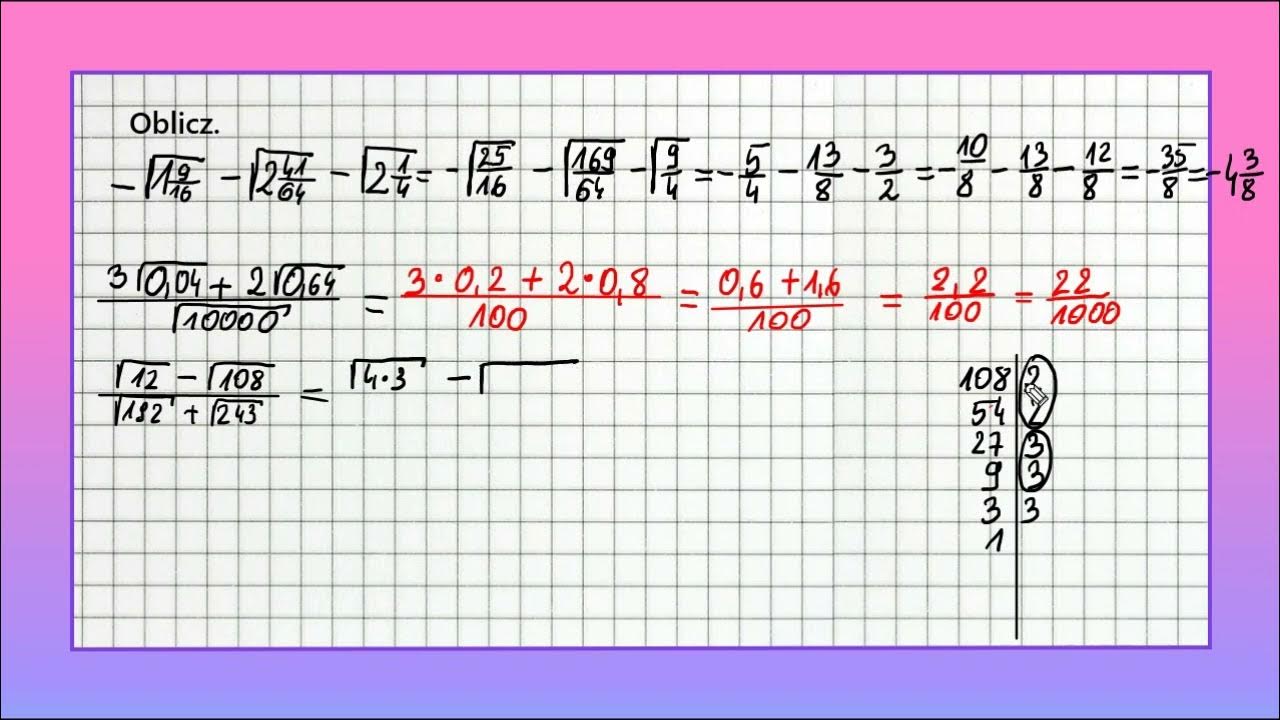 Oblicz.
-√1 9/16 - √2 41/64 - √2 1/4 = -√25/16 - √169/64 - √9/4 = -5/4 - 13/8 - 3/2 = -10/8 - 13/8 - 12/8 = -35/8 = -4 3/8
3√0,04 + 2√0,64 / √10000 = 3·0,2 + 2·0,8 / 100 = 0,6 + 1,6 / 100 = 2,2 / 100 = 22 / 1000
√12 - √108 / √192 + √243 = √4·3 - √
108 | 2
54 | 2
27 | 3
9 | 3
3 | 3
1 |